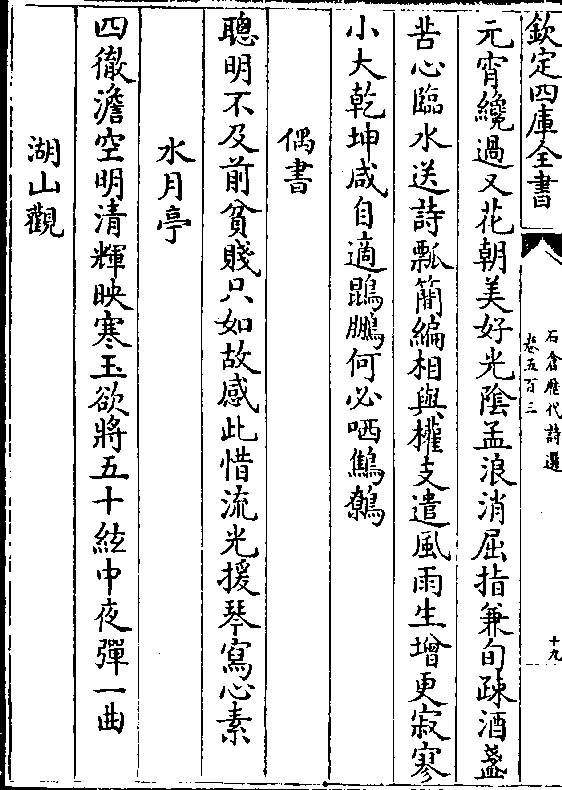 欽定四庫全書
石倉歷代詩選
卷五百三
十九
元宵纔過又花朝美好光陰孟浪消屈指兼旬疎酒盞
苦心臨水送詩瓢簡編相與權支遣風雨生增更寂寥
小大乾坤咸自適鵾鵬何必哂鷦鷯
偶書
聰明不及前貧賤只如故感此惜流光援琴寫心素
水月亭
四徹澹空明清輝映寒玉欲將五十絃中夜彈一曲
湖山觀